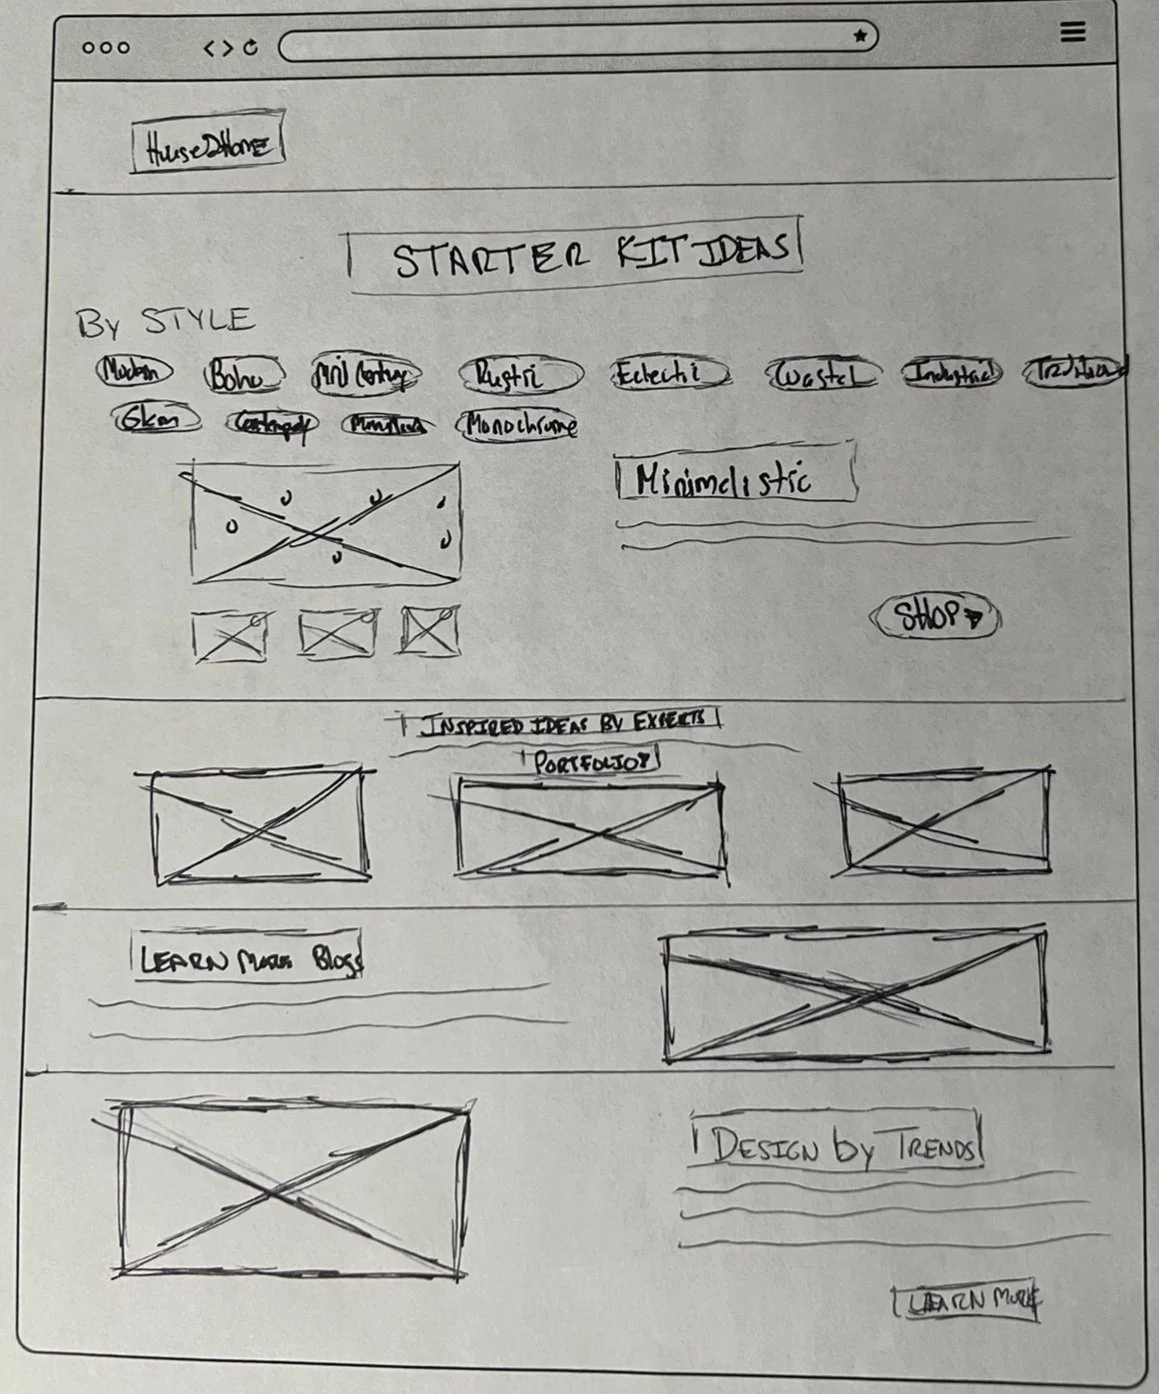 House2Home
STARTER KIT IDEAS
By STYLE
Modern Boho Mid Century Rustic Eclectic Coastal Industrial Traditional
Glam Contempory Monochrome
Minimalistic
SHOP
INSPIRED IDEAS BY EXPERTS
PORTFOLIO
LEARN MORE Blogs
DESIGN by TRENDS
LEARN MORE